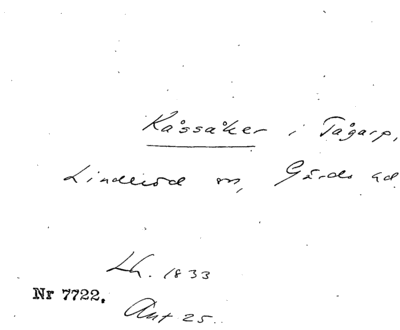 Kåssåker i Tågarp,
Linderöd sn, Gärds hd
Lh. 1833
Nr 7722.
Akt 25.